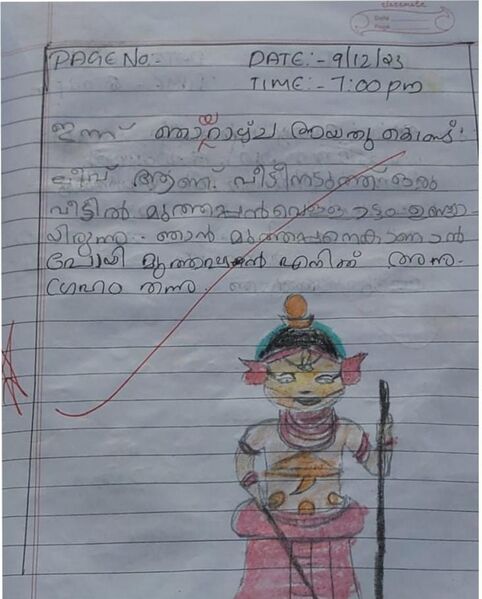 classmate
Date
Page
PAGE No:- DATE:- 9/12/23
TIME:- 7:00 pm
ഇന്ന് ഞായറാഴ്ച ആയതു കൊണ്ട്
ലീവ് ആണ്. വീടിനടുത്ത് ഒരു
വീട്ടിൽ മുത്തപ്പൻ വെള്ളാട്ടം ഉണ്ടാ
യിരുന്നു. ഞാൻ മുത്തപ്പനെകാണാൻ
പോയി മുത്തപ്പൻ എനിക്ക് അനു-
ഗ്രഹം തന്നു.